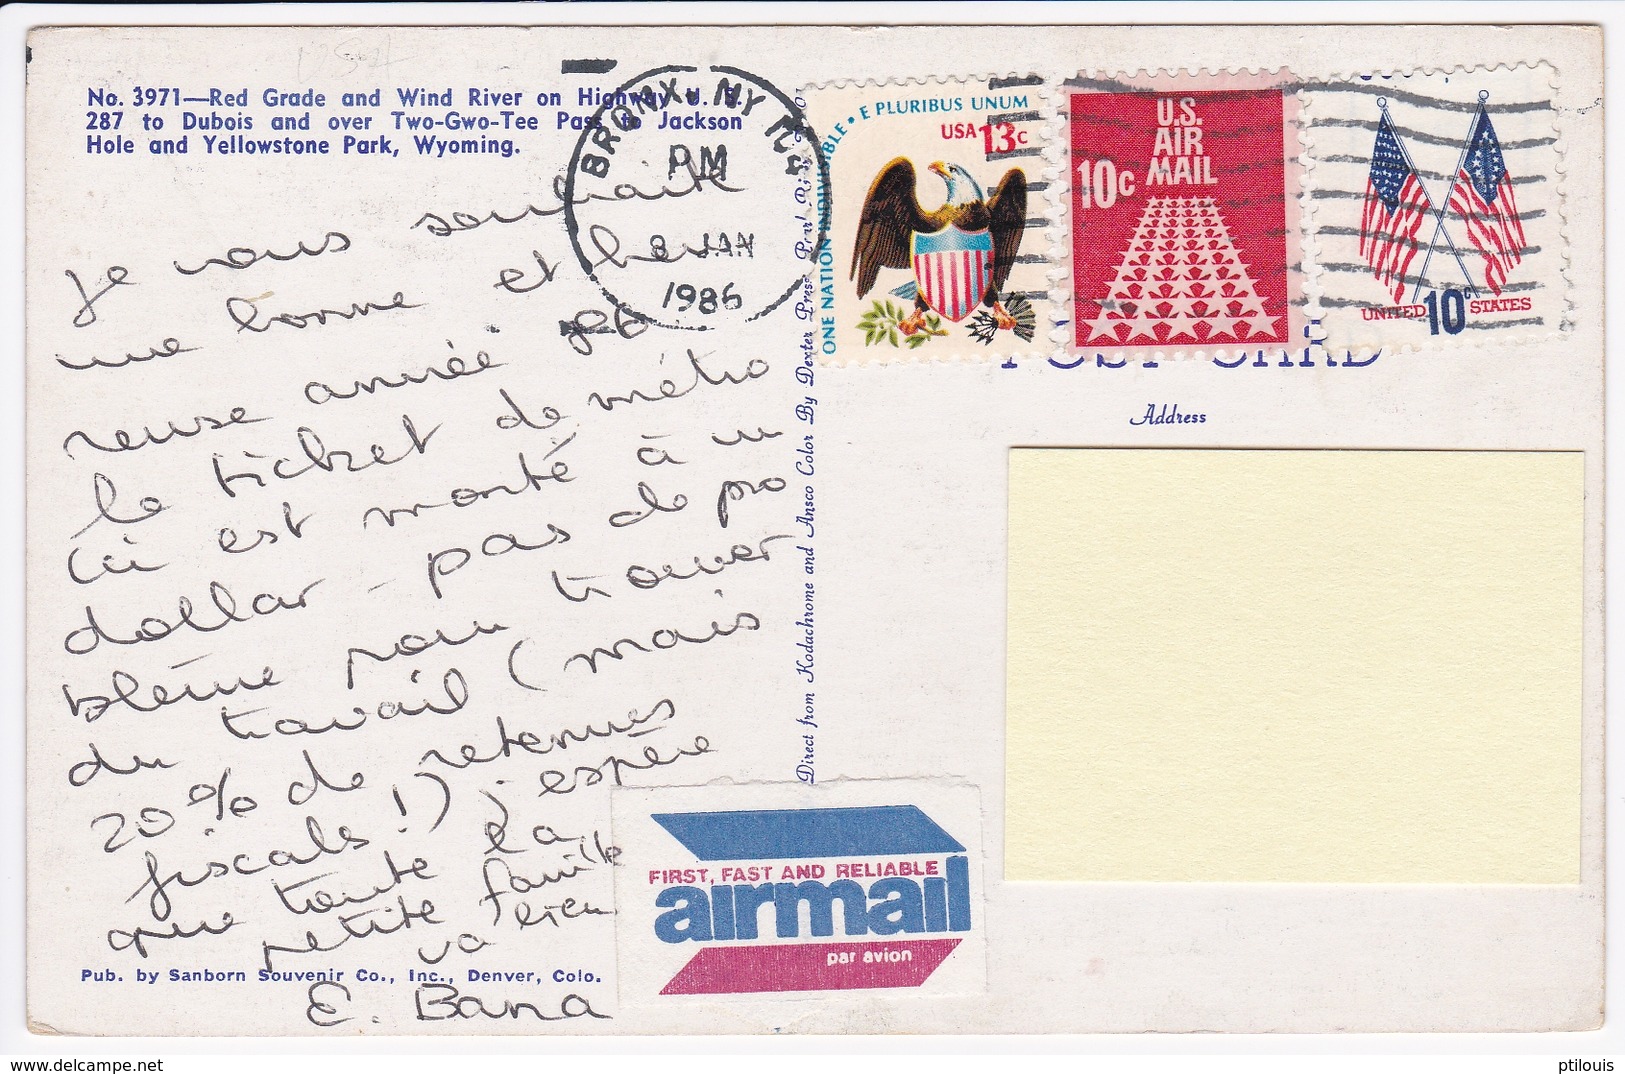 No. 3971—Red Grade and Wind River on Highway U. S.
287 to Dubois and over Two-Gwo-Tee Pass to Jackson
Hole and Yellowstone Park, Wyoming.
Je vous souhaite
une bonne et heu
reuse année
le ticket de métro
ici est monté à un
dollar - pas de pro
blème pour trouver
du travail (mais
20% de retenues
fiscales !) j'espère
que toute la
petite famille
va bien
E. Bana
Pub. by Sanborn Souvenir Co., Inc., Denver, Colo.
BRONX, NY 104
PM
8 JAN
1986
Direct from Kodachrome and Ansco Color By Dexter Press
ONE NATION INDIVISIBLE • E PLURIBUS UNUM
USA 13c
U.S.
AIR
MAIL
10c
UNITED 10c STATES
POST CARD
Address
FIRST, FAST AND RELIABLE
airmail
par avion
ptilouis
delcampe.net